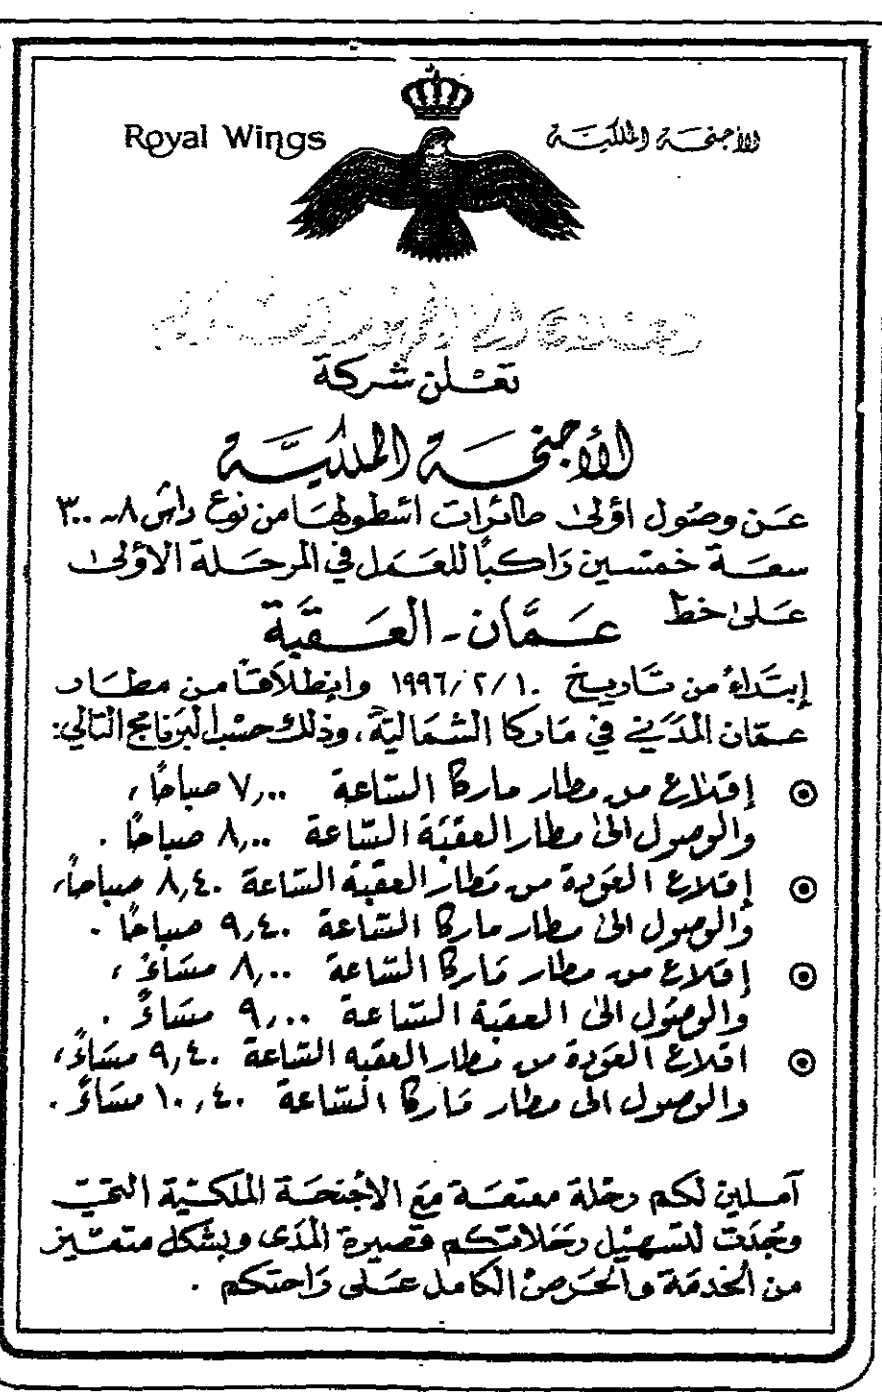 Royal Wings
الأجنحة الملكية
تعلن شركة
الأجنحة الملكية
عن وصول اولى طائرات اسطولها من نوع داش ٨-٣٠٠
سعة خمسين راكباً للعمل في المرحلة الأولى
على خط عمّان - العقبة
إبتداءً من تاريخ ١٩٩٦/٢/١٠ وإنطلاقاً من مطار
عمّان المدني في ماركا الشمالية، وذلك حسب البرنامج التالي:
إقلاع من مطار ماركا الساعة ٧,٠٠ صباحاً،
والوصول الى مطار العقبة الساعة ٨,٠٠ صباحاً .
إقلاع العودة من مطار العقبة الساعة ٨,٤٠ صباحاً،
والوصول الى مطار ماركا الساعة ٩,٤٠ صباحاً .
إقلاع من مطار ماركا الساعة ٨,٠٠ مساءً ،
والوصول الى العقبة الساعة ٩,٠٠ مساءً .
اقلاع العودة من مطار العقبه الساعة ٩,٤٠ مساءً،
والوصول الى مطار ماركا الساعة ١٠,٤٠ مساءً .
آملين لكم رحلة ممتعة مع الأجنحة الملكية التي
وجدت لتسهيل رحلاتكم قصيرة المدى وبشكل متميز
من الخدمة والحرص الكامل على راحتكم .